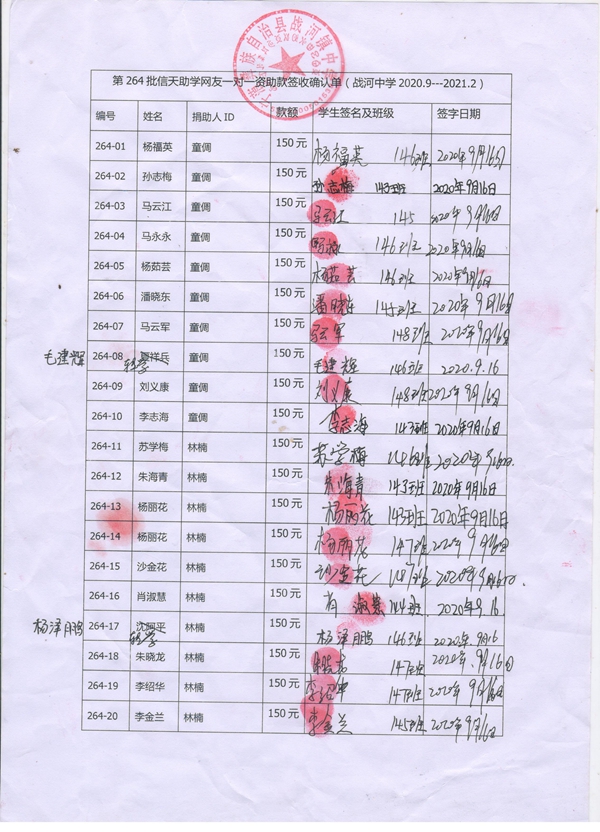 自治县战河镇中学
第264批信天助学网友一对一资助款签收确认单（战河中学2020.9---2021.2）
编号 姓名 捐助人ID 款额 学生签名及班级 签字日期
264-01 杨福英 童倜 150元 杨福英 146班 2020年9月16日
264-02 孙志梅 童倜 150元 孙志梅 143班 2020年9月16日
264-03 马云江 童倜 150元 马云江 145 2020年9月16日
264-04 马永永 童倜 150元 146班 2020年9月16日
264-05 杨茹芸 童倜 150元 杨茹芸 146班 2020年9月16日
264-06 潘晓东 童倜 150元 潘晓东 145班 2020年9月16日
264-07 马云军 童倜 150元 马云军 148班 2020年9月16日
毛建辉 264-08 夏祥兵 转学 童倜 150元 毛建辉 146班 2020.9.16
264-09 刘义康 童倜 150元 刘义康 148班 2020年9月16日
264-10 李志海 童倜 150元 李志海 143班 2020年9月16日
264-11 苏学梅 林楠 150元 苏学梅 148班 2020年9月16日
264-12 朱海青 林楠 150元 朱海青 143班 2020年9月16日
264-13 杨丽花 林楠 150元 杨丽花 143班 2020年9月16日
264-14 杨丽花 林楠 150元 杨丽花 147班 2020年9月16日
264-15 沙金花 林楠 150元 沙金花 148班 2020年9月16日
264-16 肖淑慧 林楠 150元 肖淑慧 144班 2020年9.16
杨泽鹏 264-17 沈阿平 转学 林楠 150元 杨泽鹏 146班 2020年9月16
264-18 朱晓龙 林楠 150元 朱晓龙 147班 2020年9月16日
264-19 李绍华 林楠 150元 李绍华 147班 2020年9月16日
264-20 李金兰 林楠 150元 李金兰 145班 2020年9月16日